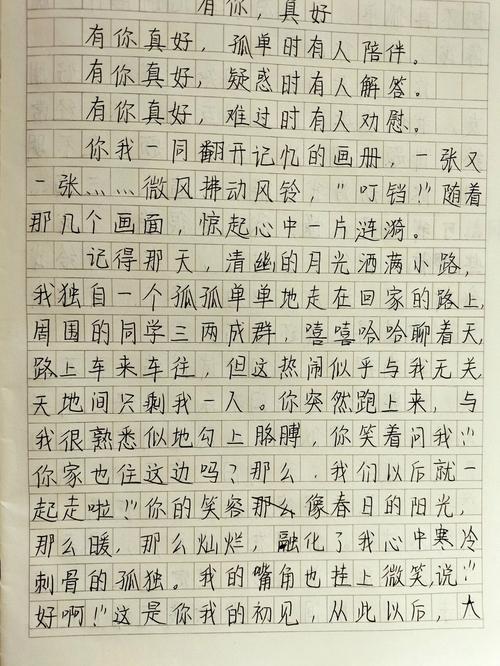 有你，真好
有你真好，孤单时有人陪伴。
有你真好，疑惑时有人解答。
有你真好，难过时有人劝慰。
你我一同翻开记忆的画册，一张又
一张……微风拂动风铃，"叮铛!"随着
那几个画面，惊起心中一片涟漪。
记得那天，清幽的月光洒满小路，
我独自一个孤孤单单地走在回家的路上，
周围的同学三两成群，嘻嘻哈哈聊着天，
路上车来车往，但这热闹似乎与我无关
天地间只剩我一人。你突然跑上来，与
我很熟悉似地勾上胳膊，你笑着问我："
你家也住这边吗？那么，我们以后就一
起走啦!"你的笑容像春日的阳光，
那么暖，那么灿烂，融化了我心中寒冷
刺骨的孤独。我的嘴角也挂上微笑，说："
好啊!"这是你我的初见，从此以后，大